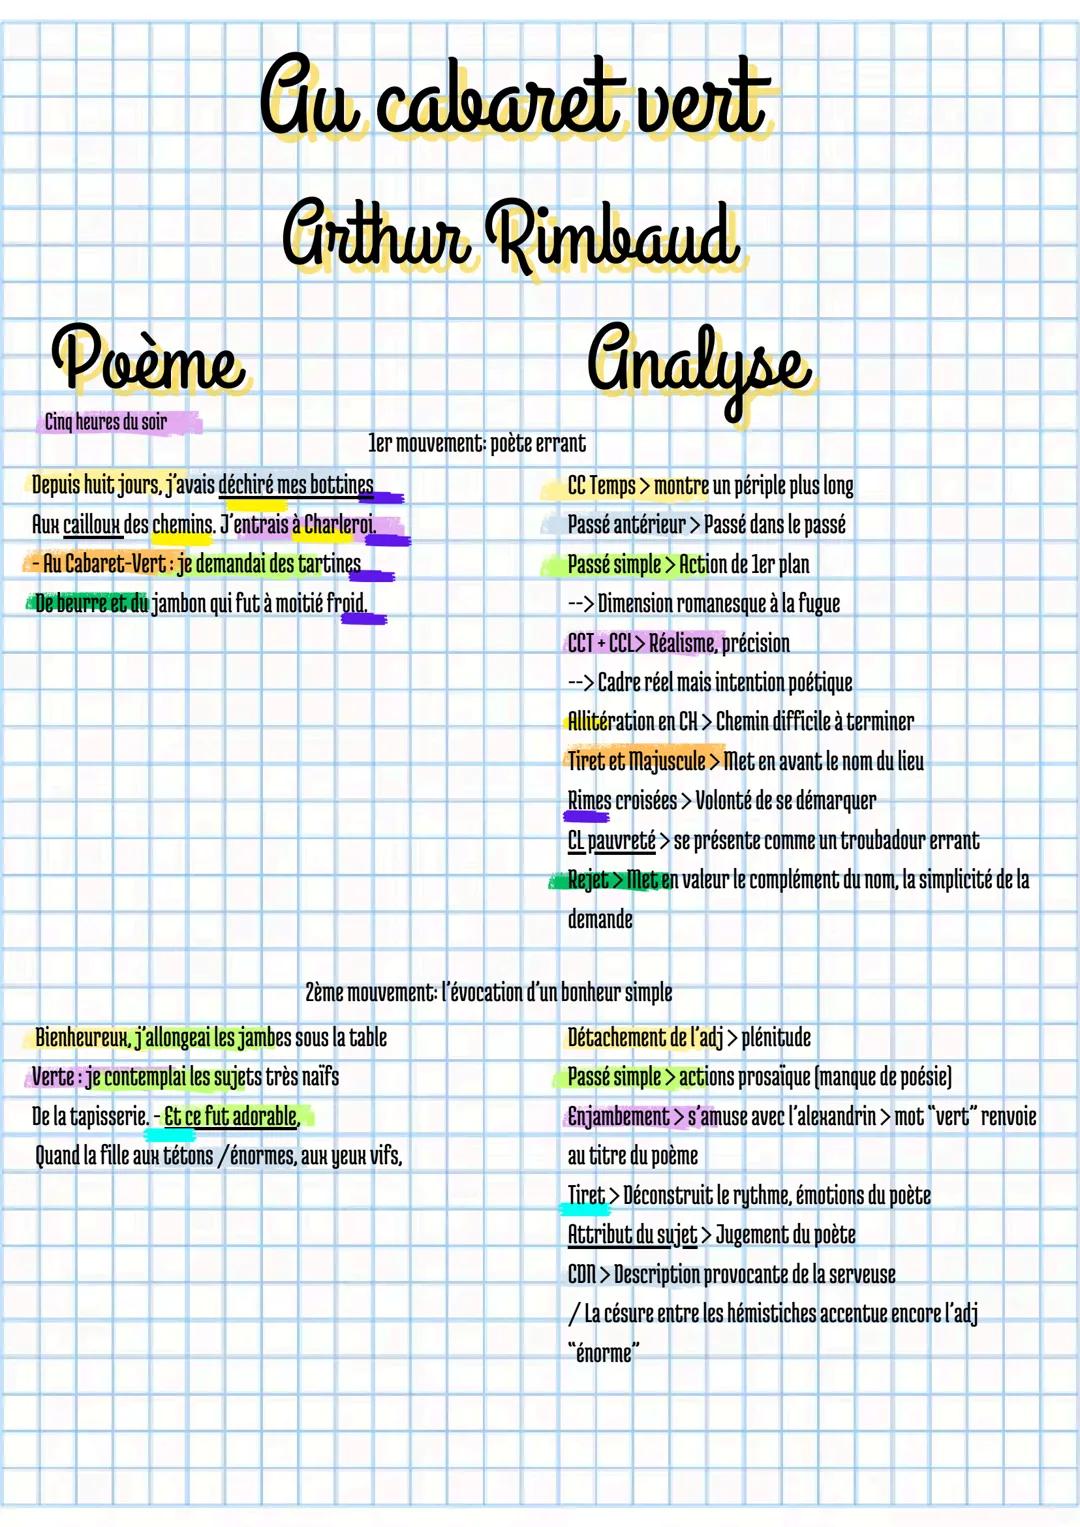 Au cabaret vert
Arthur Rimbaud
Poème
Analyse
Cinq heures du soir
1er mouvement: poète errant
Depuis huit jours, j'avais déchiré mes bottines
Aux cailloux des chemins. J'entrais à Charleroi.
- Au Cabaret-Vert : je demandai des tartines
De beurre et du jambon qui fut à moitié froid.
CC Temps > montre un périple plus long
Passé antérieur > Passé dans le passé
Passé simple > Action de 1er plan
--> Dimension romanesque à la fugue
CCT + CCL> Réalisme, précision
--> Cadre réel mais intention poétique
Allitération en CH > Chemin difficile à terminer
Tiret et Majuscule > Met en avant le nom du lieu
Rimes croisées > Volonté de se démarquer
CL pauvreté > se présente comme un troubadour errant
Rejet > Met en valeur le complément du nom, la simplicité de la
demande
2ème mouvement: l'évocation d'un bonheur simple
Bienheureux, j'allongeai les jambes sous la table
Verte : je contemplai les sujets très naïfs
De la tapisserie. - Et ce fut adorable,
Quand la fille aux tétons /énormes, aux yeux vifs,
Détachement de l'adj > plénitude
Passé simple > actions prosaïque (manque de poésie)
Enjambement > s'amuse avec l'alexandrin > mot "vert" renvoie
au titre du poème
Tiret > Déconstruit le rythme, émotions du poète
Attribut du sujet > Jugement du poète
CDN > Description provocante de la serveuse
/ La césure entre les hémistiches accentue encore l'adj
"énorme"